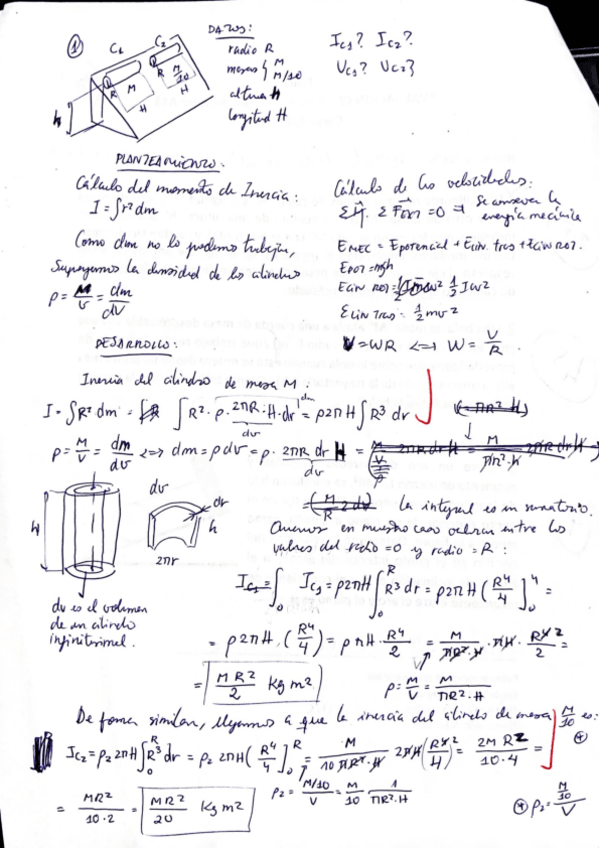 ① C1 C2
R M H
R M/10 H
h
DATOS:
radio R
masas { M M/10
altura h
longitud H
I_C1? I_C2?
V_C1? V_C2?
PLANTEAMIENTO:
Cálculo del momento de Inercia:
I = ∫r² dm
Como dm no lo podemos trabajar,
Supongamos la densidad de los cilindros
ρ = M/V = dm/dV
Cálculo de las velocidades:
= 0 → Se conserva la energía mecánica
E MEC = E potencial + E cin. Tras + E cin ROT.
E POT = mgh
E cin ROT = 1/2 I w²
E cin Tras = 1/2 mv²
V = WR <=> W = V/R.
DESARROLLO:
Inercia del cilindro de masa M:
I = ∫R² dm = ∫ R² · ρ · 2πR · H · dr = ρ2πH ∫R³ dr
dm
dv
ρ = M/V = dm/dv <=> dm = ρ dv = ρ · 2πR dr H
dv
La integral es un sumatorio.
Queremos en nuestro caso entre los
valores del radio = 0 y radio = R:
H
dv dr h
2πr
dv es el volumen
de un cilindro
infinitesimal.
I_C1 = ρ2πH ∫₀ᴿ R³ dr = ρ2πH (R⁴/4]₀⁴ =
= ρ 2πH · (R⁴/4) = ρπH · R⁴/2 = M/πR²·H · πH · R⁴ ²/2 =
= MR²/2 Kg m²
ρ = M/V = M/πR²·H
De forma similar, llegamos a que la inercia del cilindro de masa M/10 es:
I_C2 = ρ₂ 2πH ∫₀ᴿ R³ dr = ρ₂ 2πH (R⁴/4]₀ᴿ = M/10πR²·H 2πH (R⁴ ²/4) = 2MR²/10·4 =
= MR²/10·2 = MR²/20 Kg m²
ρ₂ = M/10/V = M/10 1/πR²·H
⊛ ρ₂ = M/10/V